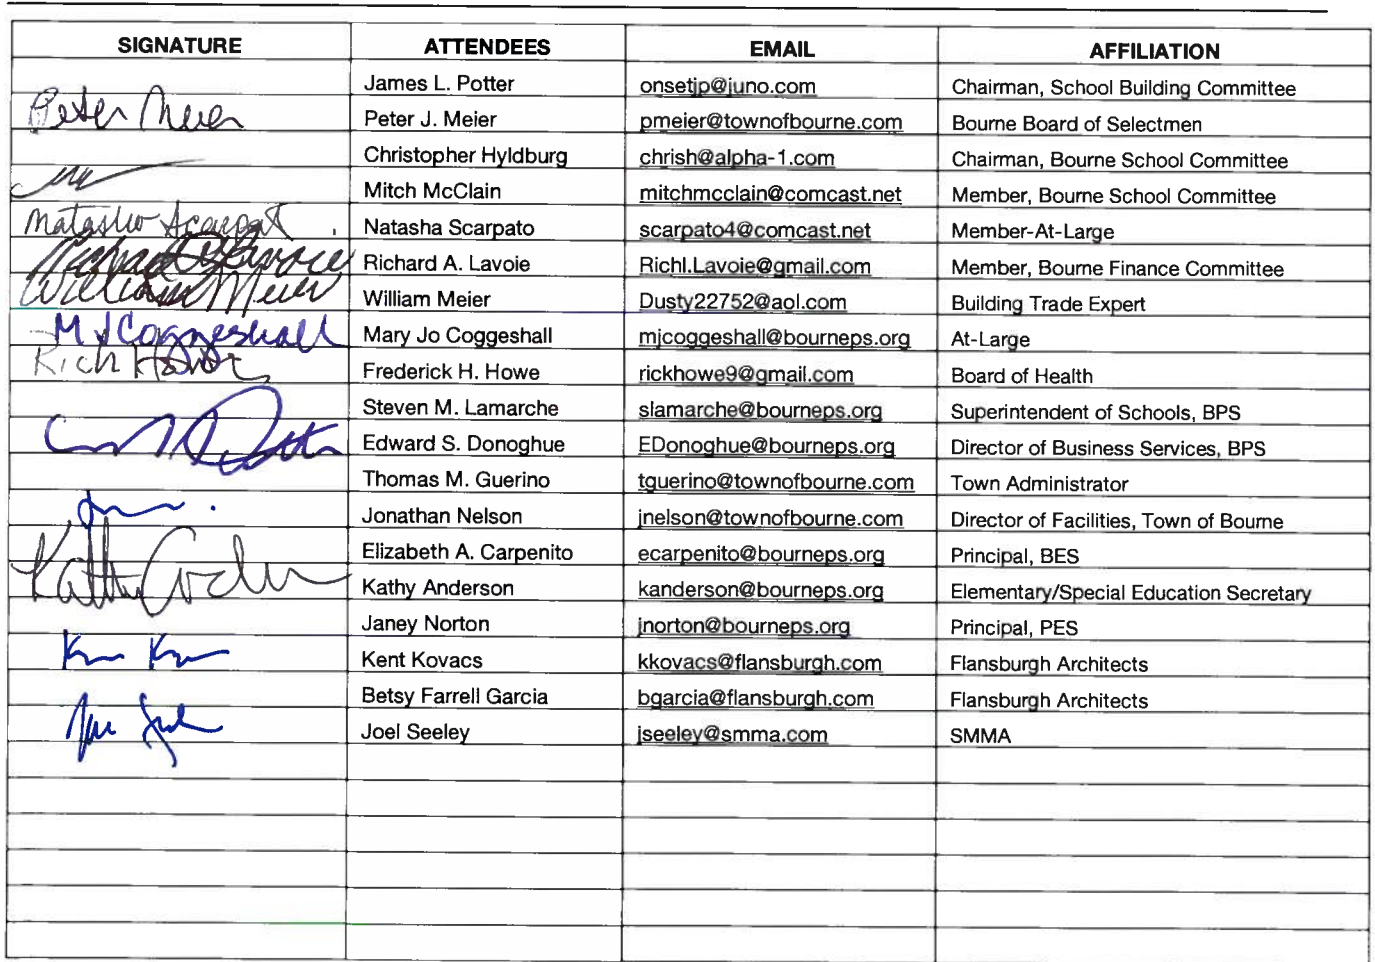 SIGNATURE ATTENDEES EMAIL AFFILIATION
James L. Potter onsetjp@juno.com Chairman, School Building Committee
Peter Meier Peter J. Meier pmeier@townofbourne.com Bourne Board of Selectmen
Christopher Hyldburg chrish@alpha-1.com Chairman, Bourne School Committee
Mitch McClain mitchmcclain@comcast.net Member, Bourne School Committee
Natasha Scarpato Natasha Scarpato scarpato4@comcast.net Member-At-Large
Richard A Lavoie Richard A. Lavoie Richl.Lavoie@gmail.com Member, Bourne Finance Committee
William Meier William Meier Dusty22752@aol.com Building Trade Expert
M J Coggeshall Mary Jo Coggeshall mjcoggeshall@bourneps.org At-Large
Frederick H. Howe rickhowe9@gmail.com Board of Health
Steven M. Lamarche slamarche@bourneps.org Superintendent of Schools, BPS
Edward S. Donoghue EDonoghue@bourneps.org Director of Business Services, BPS
Thomas M. Guerino tguerino@townofbourne.com Town Administrator
Jonathan Nelson jnelson@townofbourne.com Director of Facilities, Town of Bourne
Elizabeth A. Carpenito ecarpenito@bourneps.org Principal, BES
Kathy Anderson kanderson@bourneps.org Elementary/Special Education Secretary
Janey Norton jnorton@bourneps.org Principal, PES
Kent Kovacs kkovacs@flansburgh.com Flansburgh Architects
Betsy Farrell Garcia bgarcia@flansburgh.com Flansburgh Architects
Joel Seeley jseeley@smma.com SMMA